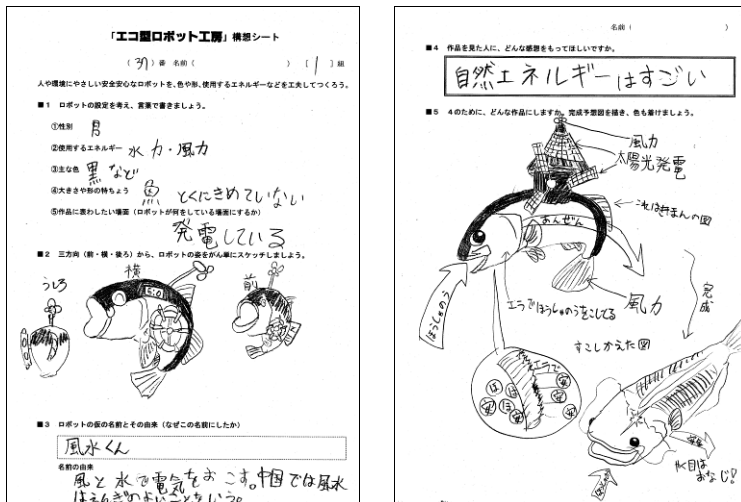 「エコ型ロボット工房」構想シート
(37)番 名前( ) [1]組
人や環境にやさしい安全安心なロボットを、色や形、使用するエネルギーなどを工夫してつくろう。
■1 ロボットの設定を考え、言葉で書きましょう。
①性別 男
②使用するエネルギー 水力・風力
③主な色 黒など
④大きさや形の特ちょう 魚 とくにきめていない
⑤作品に表わしたい場面(ロボットが何をしている場面にするか)
発電している
■2 三方向(前・横・後ろ)から、ロボットの姿をかん単にスケッチしましょう。
うしろ
横
前
■3 ロボットの仮の名前とその由来(なぜこの名前にしたか)
風水くん
名前の由来
風と水で電気をおこす。中国では風水
はえんぎのよいことをいう。
名前( )
■4 作品を見た人に、どんな感想をもってほしいですか。
自然エネルギーはすごい
■5 4のために、どんな作品にしますか。完成予想図を描き、色も着けましょう。
風力
太陽光発電
あんぜん
ほうしゃのう
風力
エラでほうしゃのうをこしてる
完成
すこしかえた図
エラで
ほ
ほ
安
安
安
安
目は
おなじ!